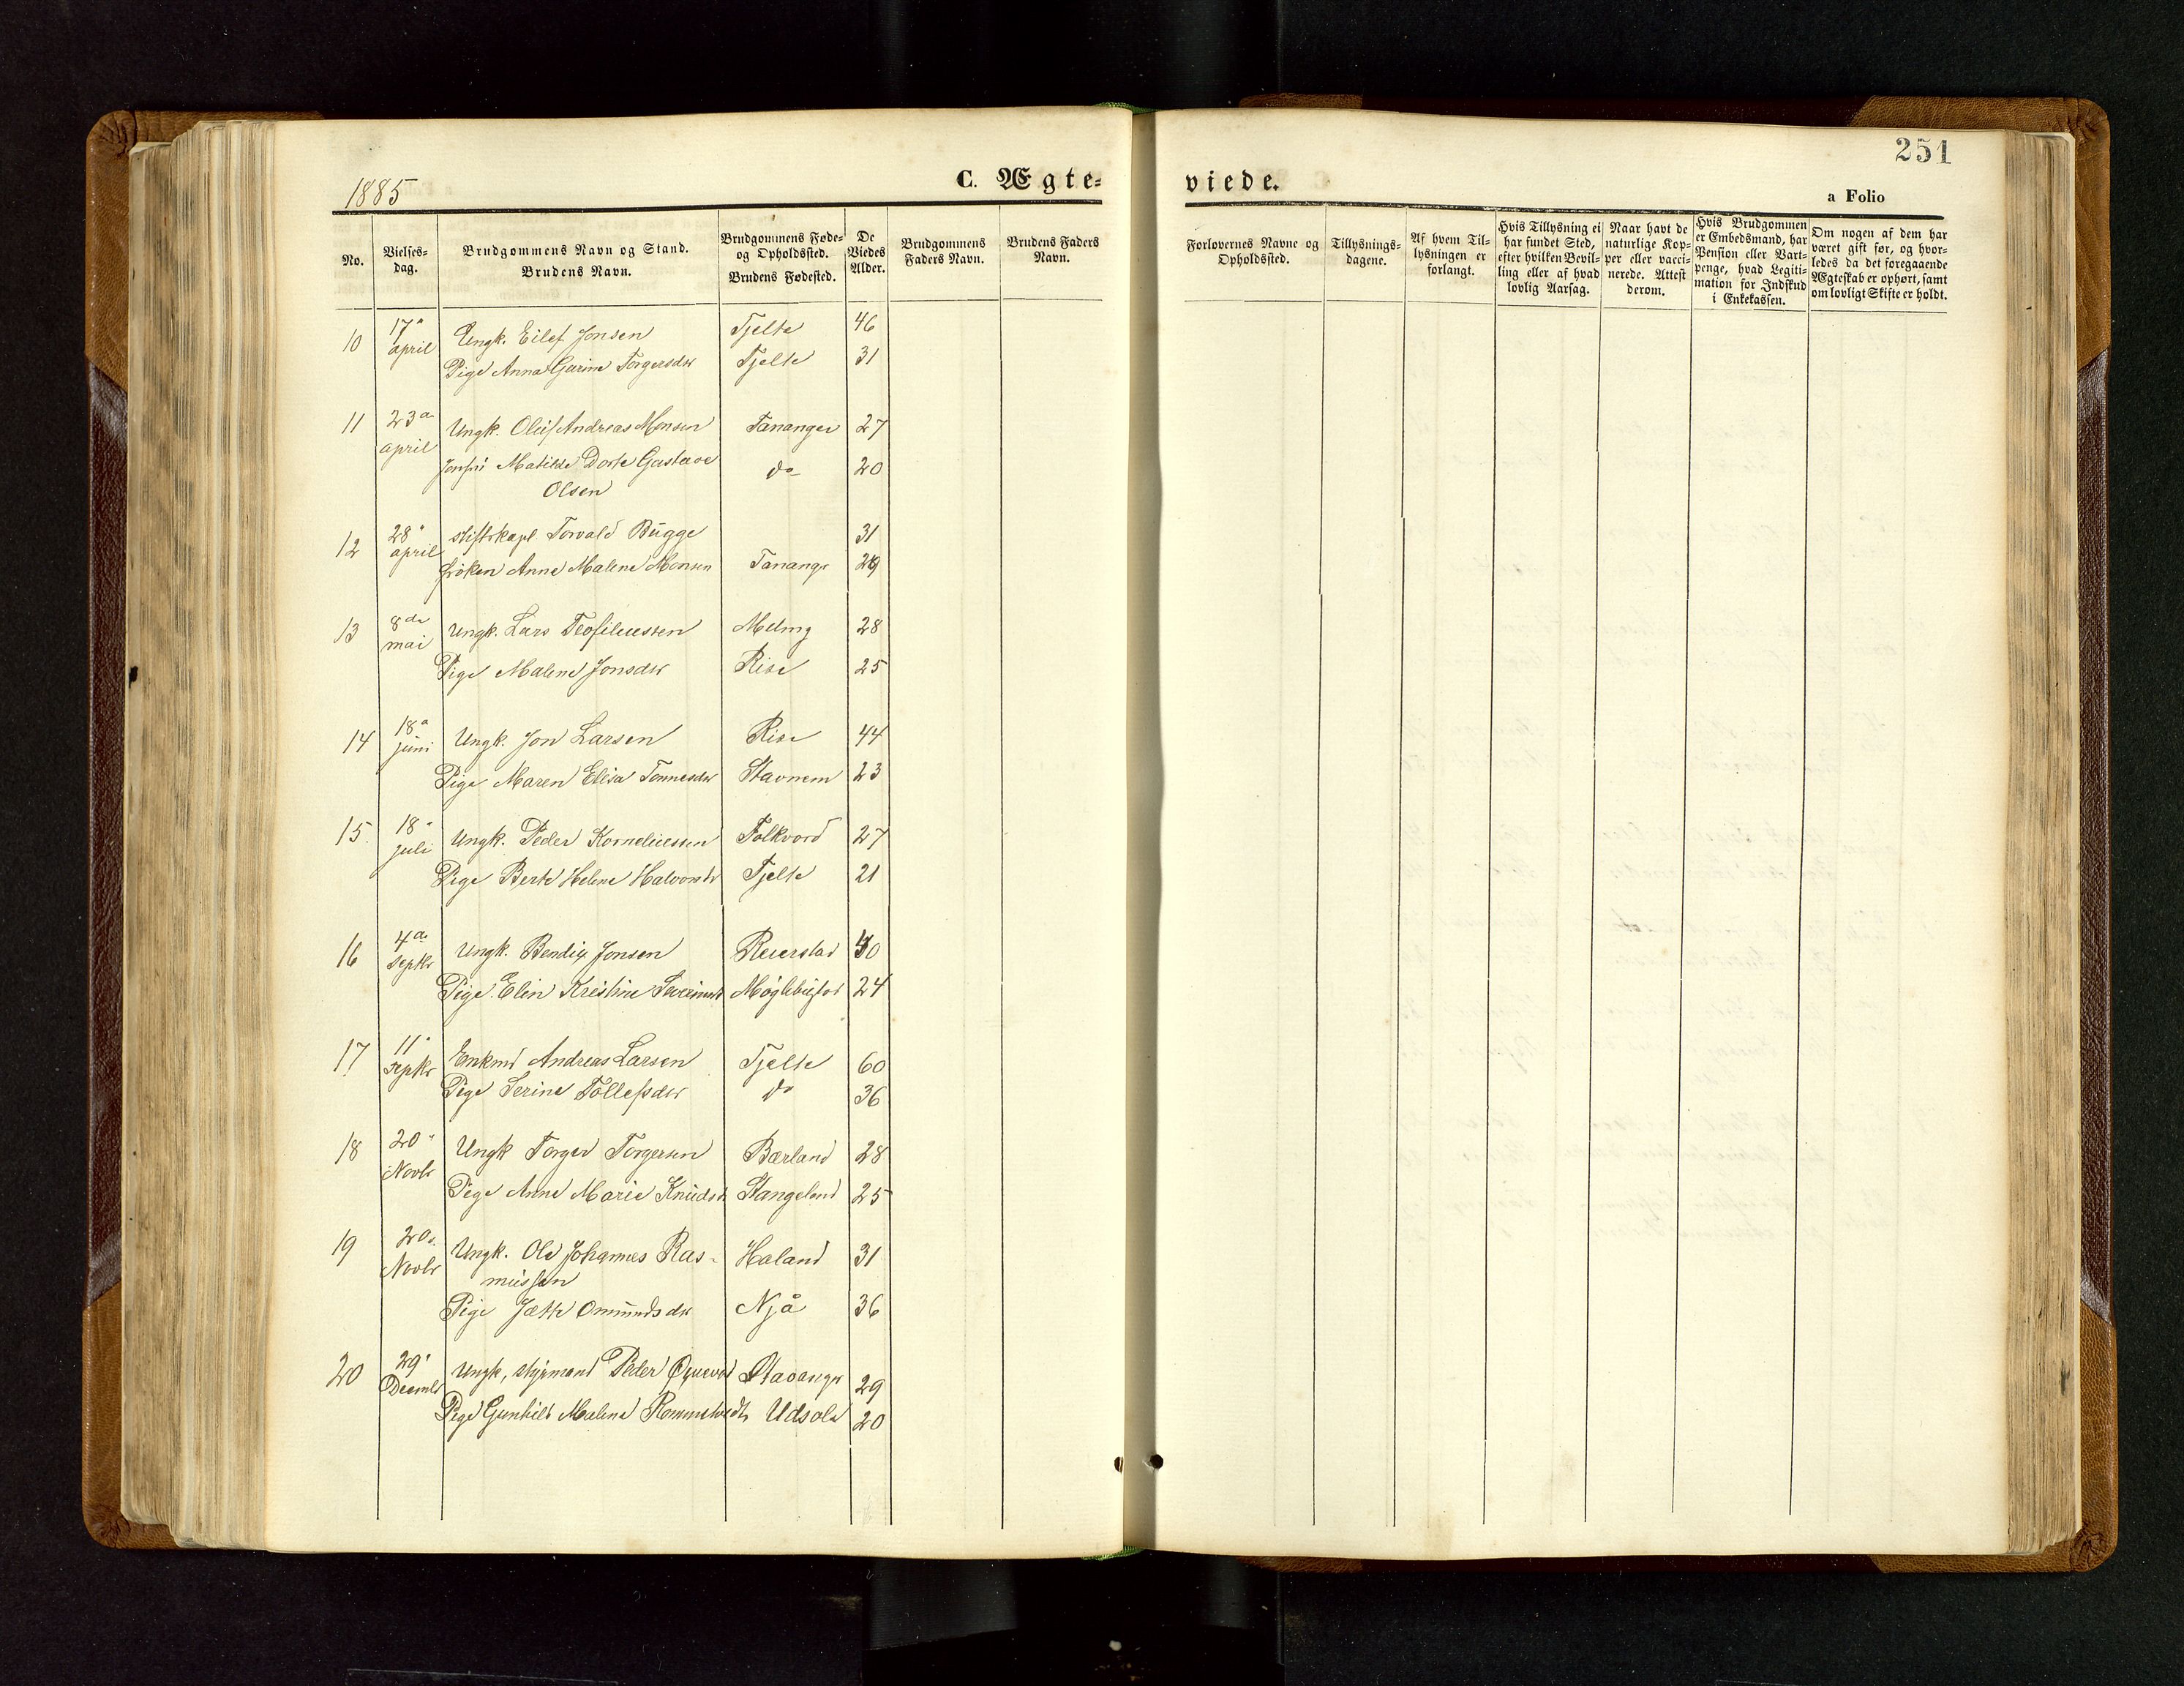 1885
C. Ægte-
viede.
251
a Folio
No.
Vielses-
dag.
Brudgommens Navn og Stand.
Brudens Navn.
Brudgommens Føde-
og Opholdssted.
Brudens Fødested.
De
Viedes
Alder.
Brudgommens
Faders Navn.
Brudens Faders
Navn.
Forlovernes Navne og
Opholdssted.
Tillysnings-
dagene.
Af hvem Til-
lysningen er
forlangt.
Hvis Tillysning ei
har fundet Sted,
efter hvilken Bevil-
ling eller af hvad
lovlig Aarsag.
Naar havt de
naturlige Kop-
per eller vacci-
nerede. Attest
derom.
Hvis Brudgommen
er Embedsmand, har
Pension eller Vart-
penge, hvad Legiti-
mation for Indskud
i Enkekassen.
Om nogen af dem har
været gift før, og hvor-
ledes da det foregaaende
Ægteskab er ophørt, samt
om lovligt Skifte er holdt.
10 17 april Ungk. Eilef Jonsen Tjelte 46
Pige Anna Garine Torgersdtr Tjelte 31
11 23 april Ungk. Oluf Andreas Monsen Tananger 27
Matilde Dorte Gustave do 20
Olsen
12 28 april stiftskapl Torvald Bugge 31
frøken Anne Malene Monsen Tananger
13 8de mai Ungk. Lars Teofiliussen Meling 28
Pige Malene Jonsdtr Risa 25
14 18 juni Ungk. Jon Larsen Risa 44
Pige Maren Elisa Tonnesdtr Stavnem 23
15. 18 juli Ungk. Peder Korneliussen Folkvord 27
Pige Berte Helene Halvorsdtr Tjelte 21
16 4 Septbr Ungk. Bendix Jonsen Reierstad
Pige Elin Kristine Severinsdtr 24
17 11 Septbr Enkmd Andreas Larsen Tjelte 60
Pige Serine Tollefsdtr do 36
18 20 Novbr Ungk Torger Torgersen Bærland 28
Pige Anne Marie Knudsd Stangeland 25
19 20 Novbr Ungk. Ole Johannes Ras-
mussen Haland 31
Pige Jætte Omundsdtr Njå 36
20 29 Decembr Ungk, styrmand Peder Stavanger 29
Pige Gunhild Malena Rommetvedt Udsola 20